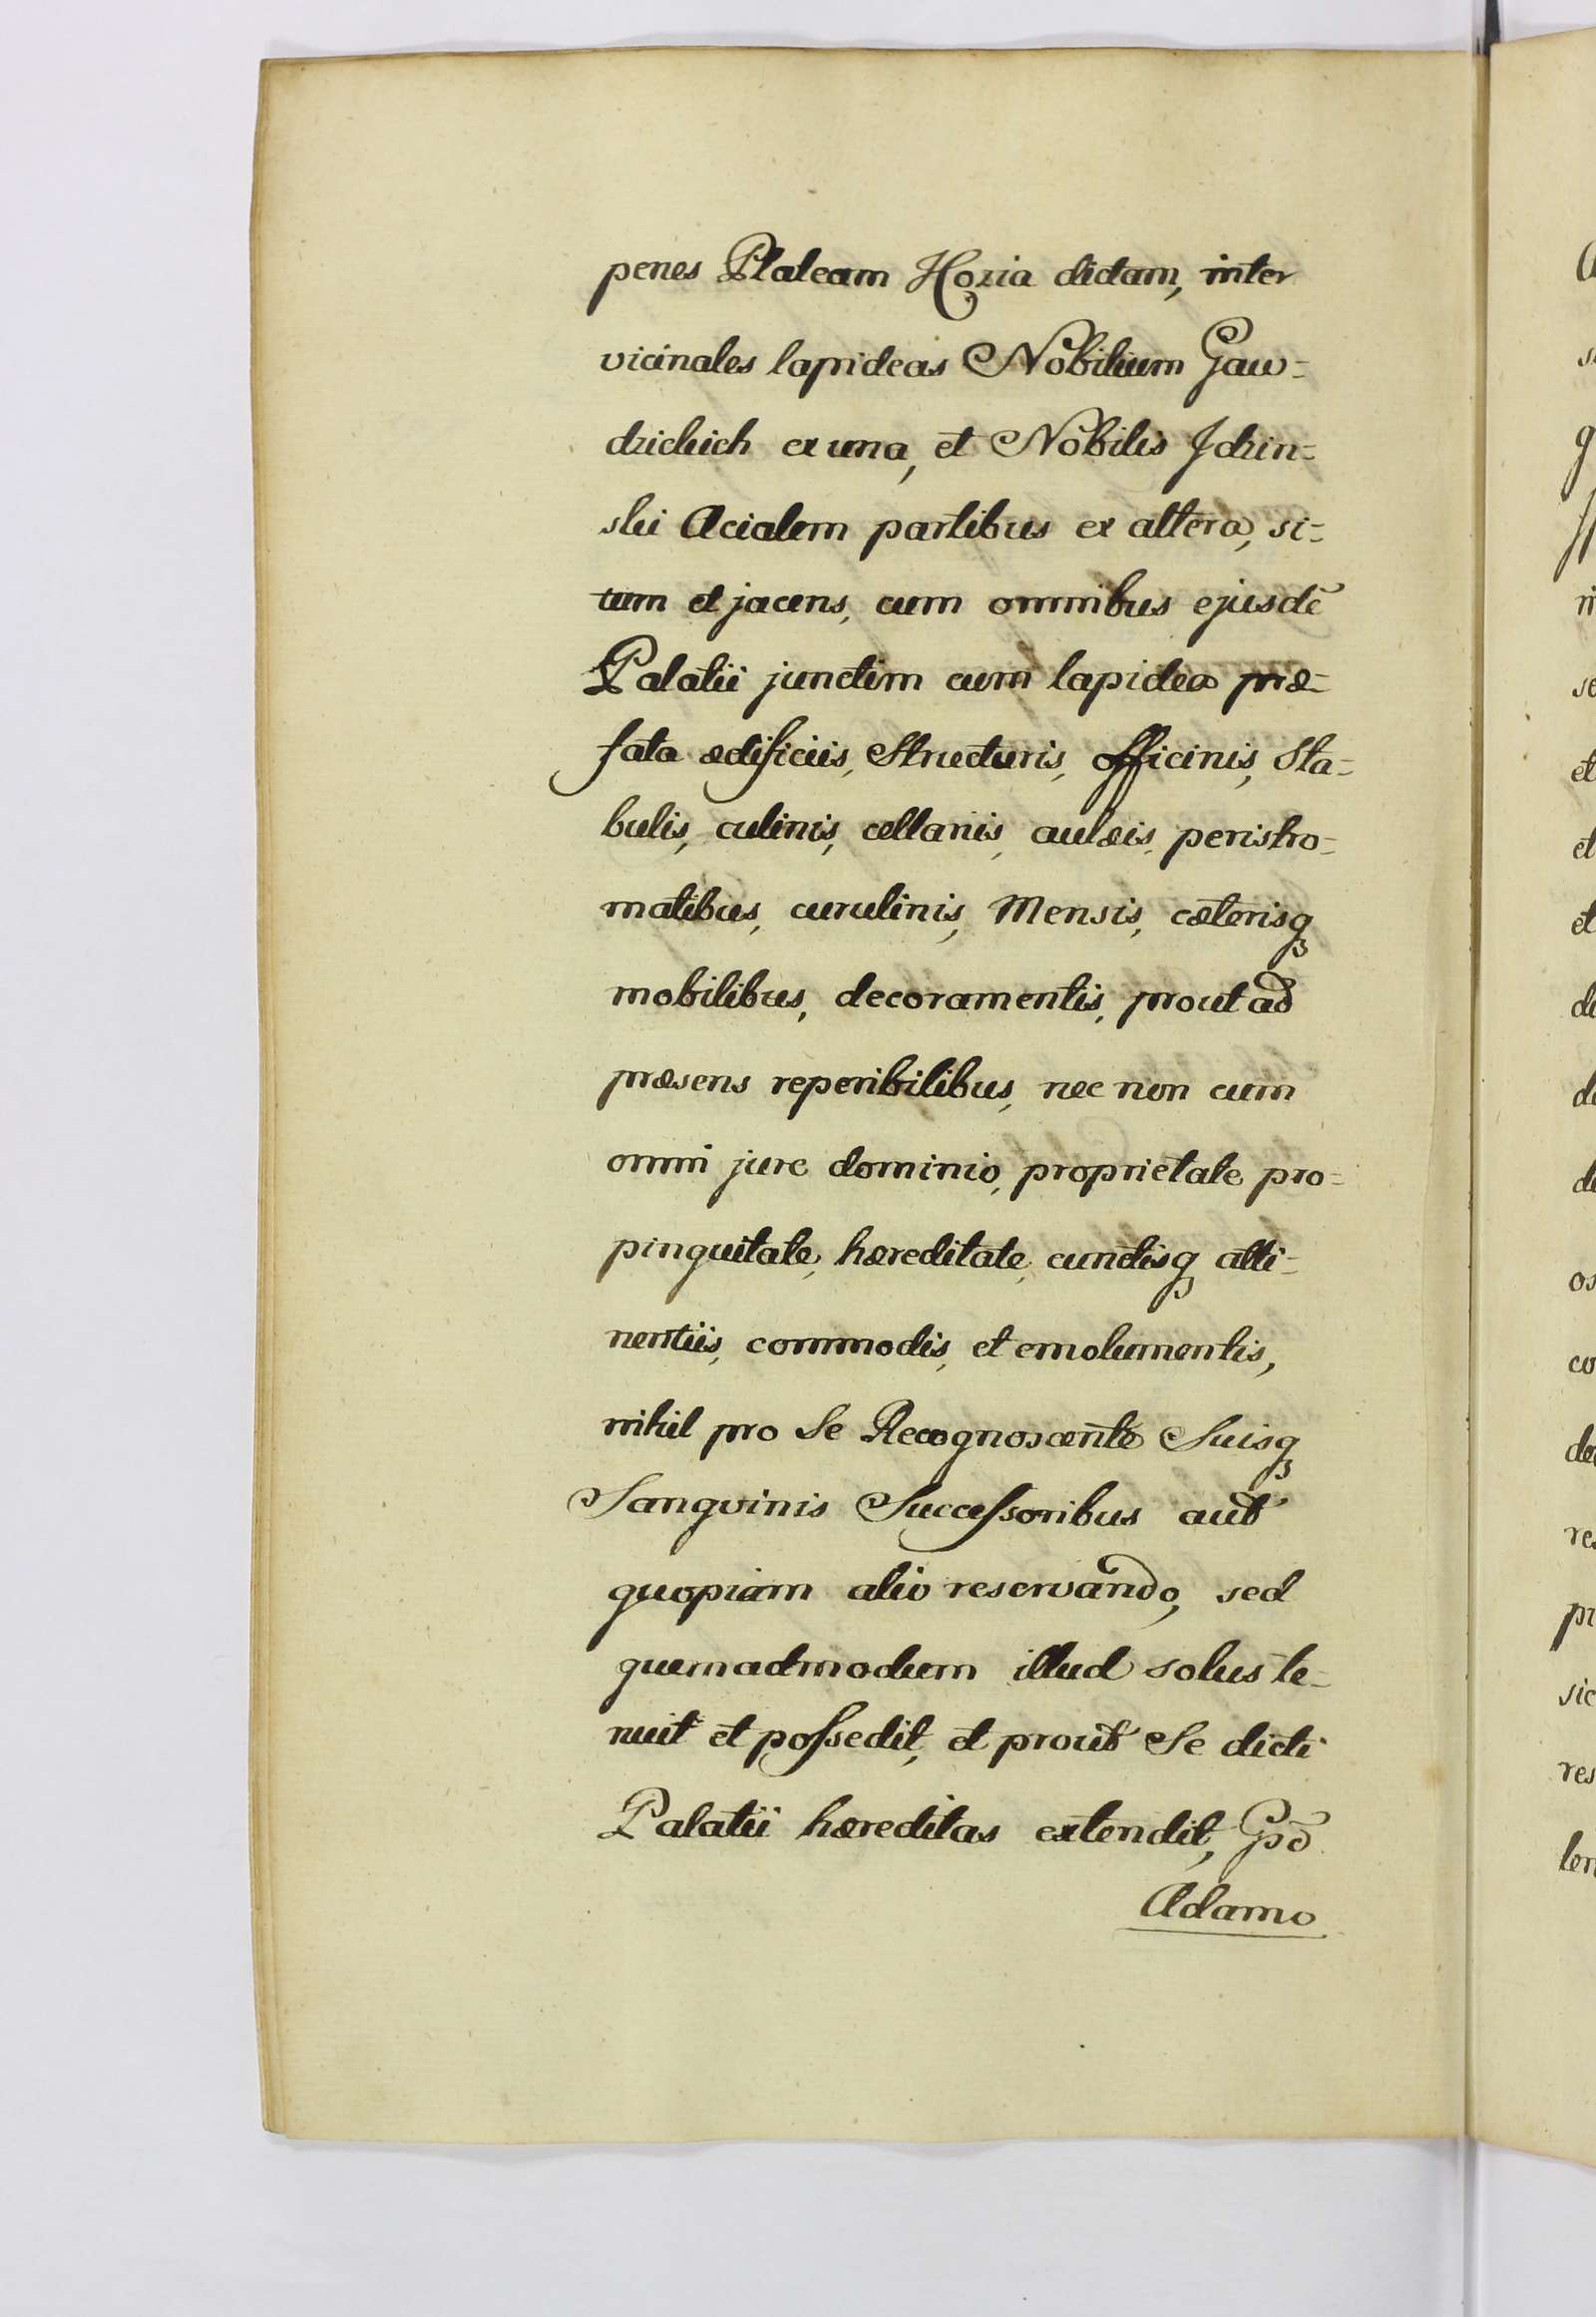 penes Plateam Hozia dictam, inter
vicinales lapideas Nobilium Gaw=
dzickich ex una, et Nobilis Jdzin=
ski Acialem partibus ex altera, si=
tum et jacens, cum omnibus ejusdē
Palatii junctim cum lapidea præ=
fata ædificiis, Structuris, officinis, Sta=
bulis, culinis, cellariis, aulæis, peristro=
matibus, curulinis, Mensis, cæterisq
mobilibus, decoramentis, prout ad
præsens reperibilibus, nec non cum
omni jure dominio, proprietate, pro=
pinquitate, hæreditate, cunctisq atti=
nentiis, commodis, et emolumentis,
nihil pro Se Recognoscente Suisq
Sangvinis Successoribus aut
quopiam alio reservando, sed
quemadmodum illud solus te=
nuit et possedit, et prout Se dicti
Palatii hæreditas extendit, Gsō
Adamo